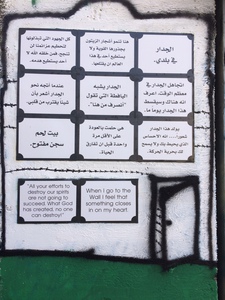 الجدار
في بلدي.
هنا تنمو أشجار الزيتون
بجذورها القوية ولا
يستطيع أحد في هذا
العالم أن يقتلعها.
كل الجهود التي تبذلونها
لتحطيم عزائمنا لن
تنجح. فمن خلقه الله لا
أحد يستطيع هدمه.
أتجاهل الجدار
معظم الوقت. أعرف
أنه هناك وسيسقط
هذا الجدار يوماً ما.
الجدار يشبه
اليافطة التي تقول
"انصرف من هنا".
عندما أتجه نحو
الجدار أشعر بأن
شيئاً يقترب من قلبي.
يولد هذا الجدار
الذي يحيط بك ولا يسمح
لك بحرية الحركة.
هي حلمت بالعودة
على الأقل مرة
واحدة قبل أن تفارق
الحياة.
بيت لحم
سجن مفتوح.
"All your efforts to
destroy our spirits
are not going to
succeed. What God
has created, no one
can destroy!"
When I go to the
Wall I feel that
something closes
in on my heart.